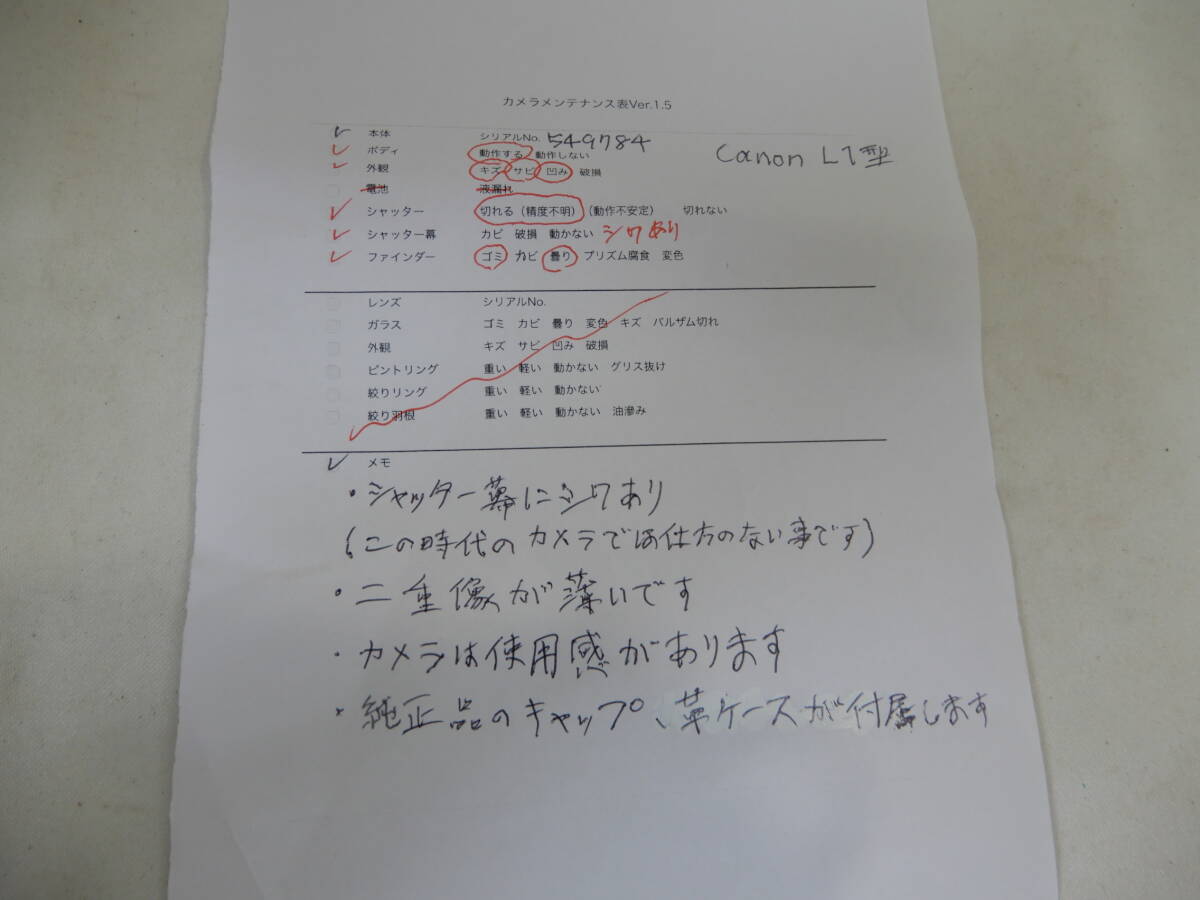 カメラメンテナンス表Ver.1.5
本体 シリアルNo. 549784
Canon L1型
ボディ 動作する 動作しない
外観 キズ サビ 凹み 破損
電池 液漏れ
シャッター 切れる（精度不明） （動作不安定） 切れない
シャッター幕 カビ 破損 動かない シワあり
ファインダー ゴミ カビ 曇り プリズム腐食 変色
レンズ シリアルNo.
ガラス ゴミ カビ 曇り 変色 キズ バルザム切れ
外観 キズ サビ 凹み 破損
ピントリング 重い 軽い 動かない グリス抜け
絞りリング 重い 軽い 動かない
絞り羽根 重い 軽い 動かない 油滲み
メモ
・シャッター幕にシワあり
(この時代のカメラでは仕方のない事です)
・二重像が薄いです
・カメラは使用感があります
・純正品のキャップ、革ケースが付属します